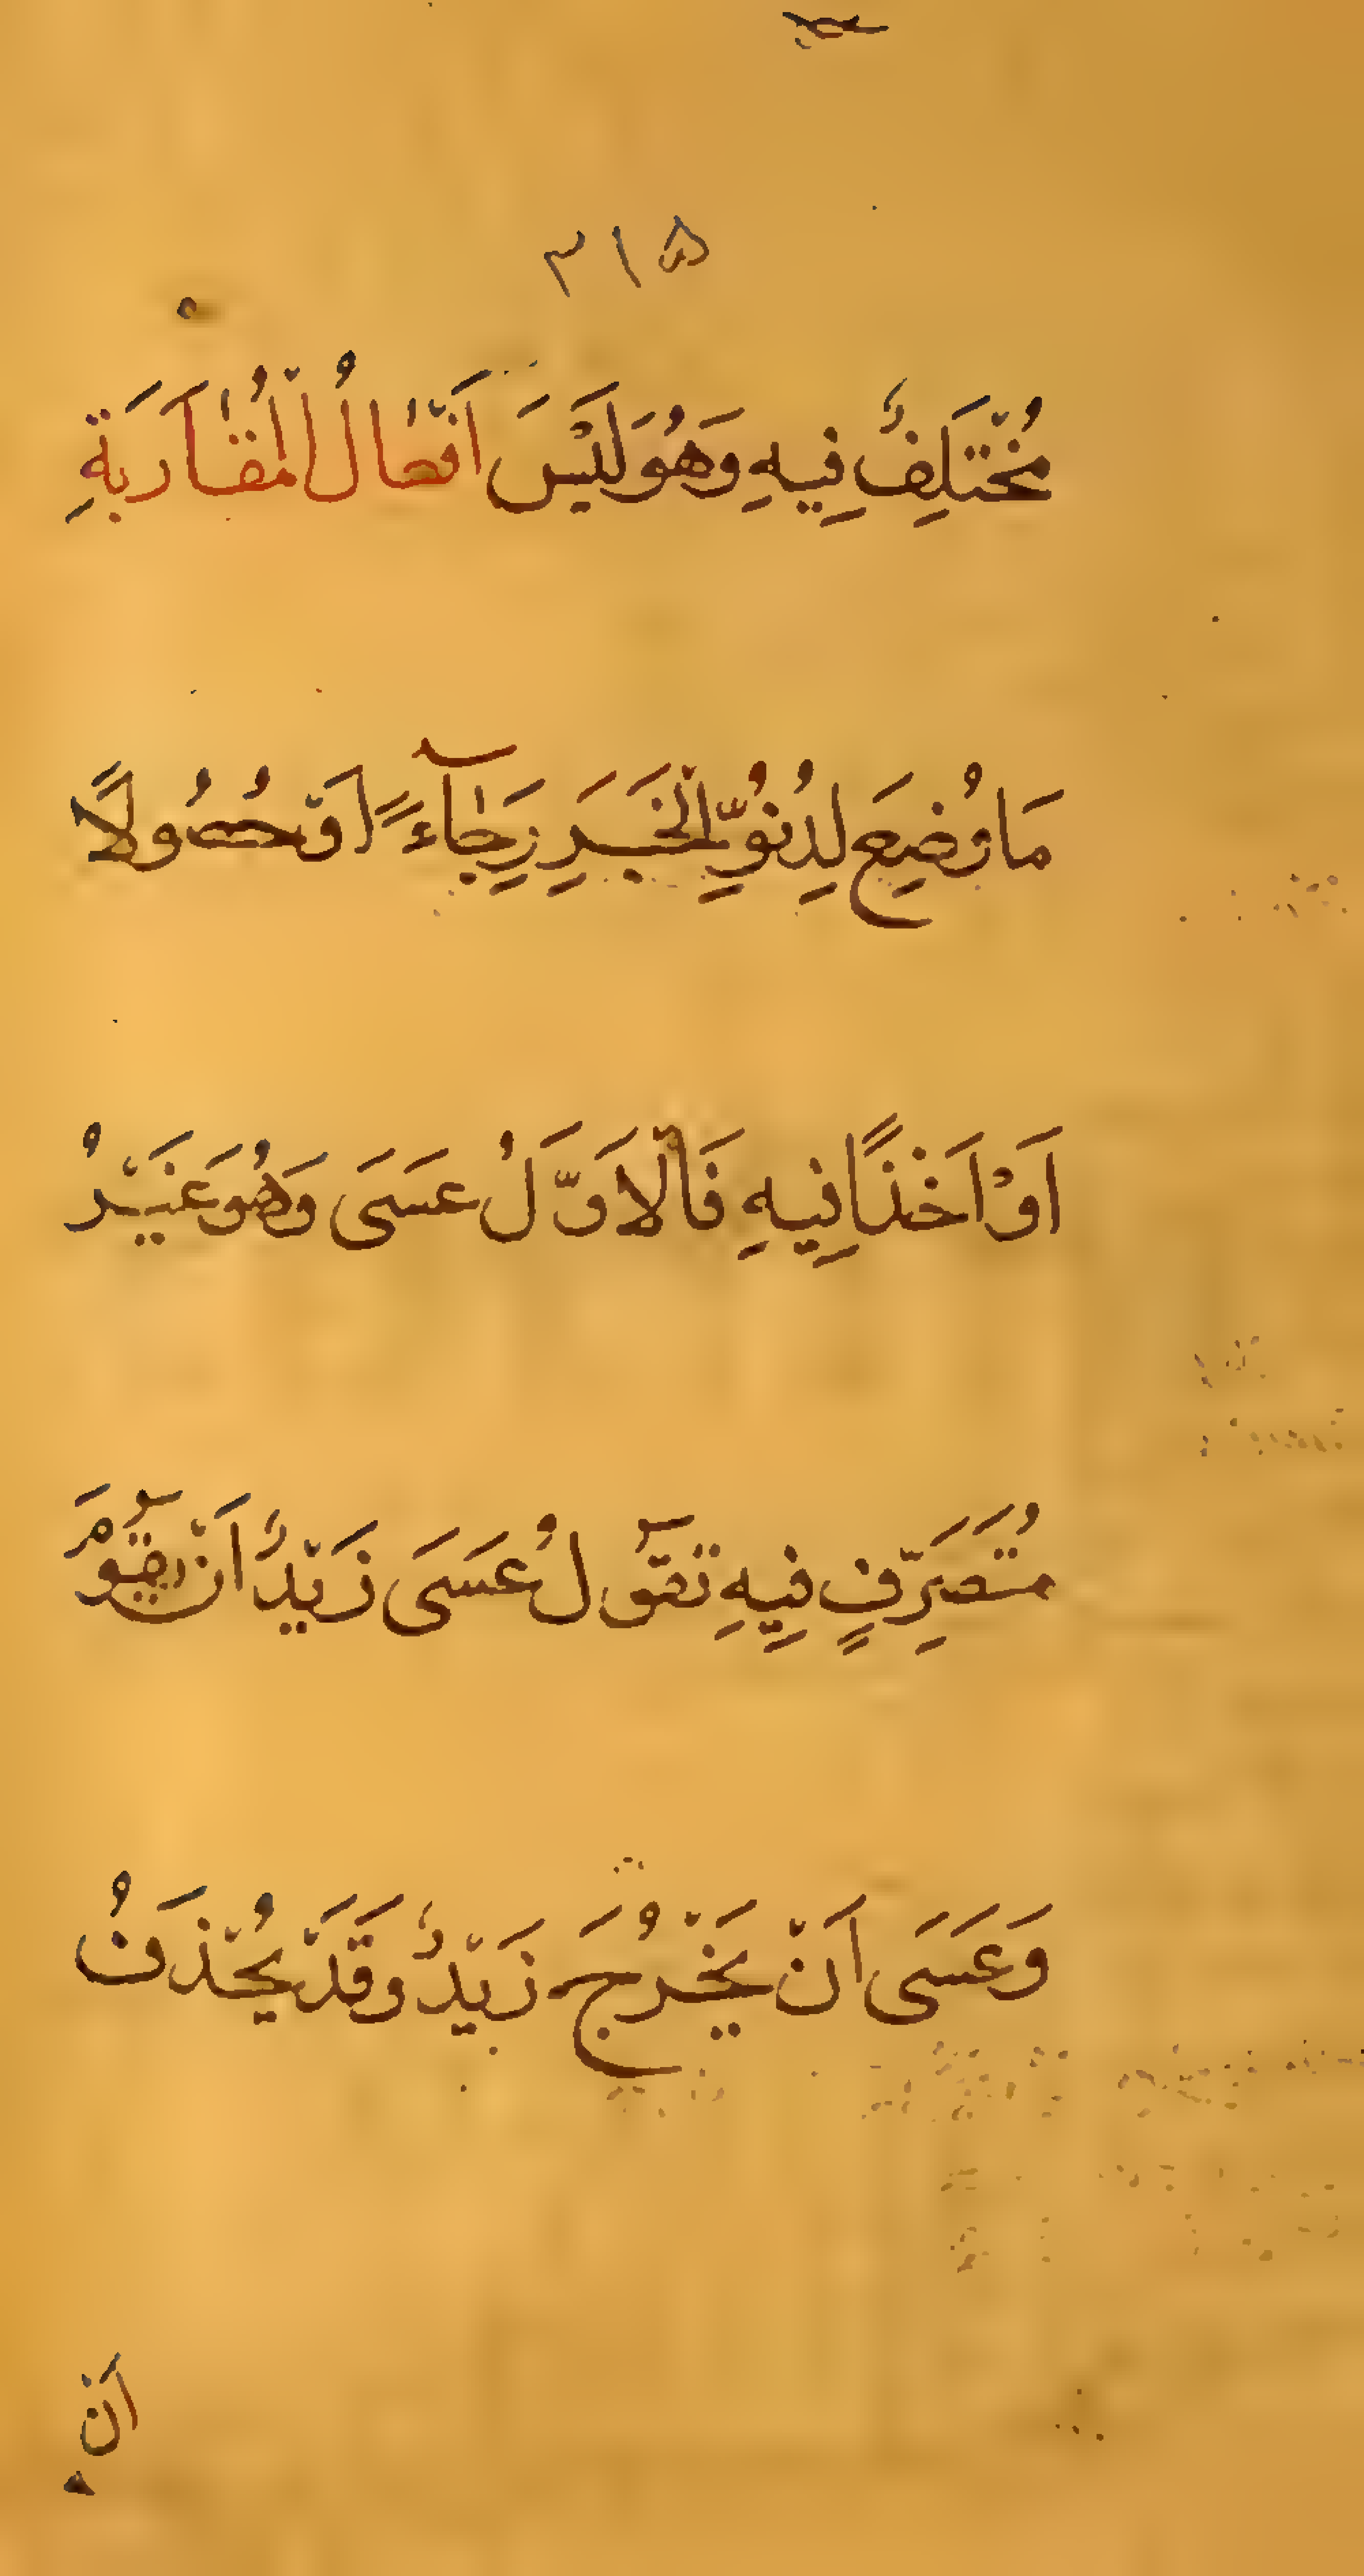 ۳۱۵
مُخْتَلَفٌ فِيهِ وَهُوَ لَيْسَ اَفْعَالُ الْمُقَارَبَةِ
مَا وُضِعَ لِدُنُوِّ الْخَبَرِ رَجَآءً اَوْ حُصُولًا
اَوْ اَخْذًا فِيهِ فَالْاَوَّلُ عَسَى وَهُوَ غَيْرُ
مُتَصَرِّفٍ فِيهِ تَقُولُ عَسَى زَيْدٌ اَنْ يَقُومَ
وَعَسَى اَنْ يَخْرُجَ زَيْدٌ وَقَدْ يُحْذَفُ
اَنْ